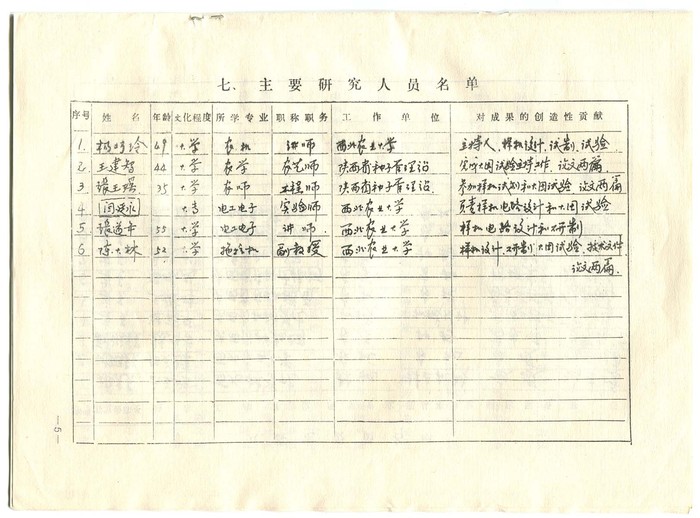 七、主要研究人员名单
序号 姓名 年龄 文化程度 所学专业 职称职务 工作单位 对成果的创造性贡献
1. 49 大学 农机 讲师 西北农业大学 主持人、样机设计、试制、试验
2. 王建智 44 大学 农学 农艺师 陕西省种子管理站 大田试验主持工作、论文两篇
3. 35 大学 农师 工程师 陕西省种子管理站. 参加样机试制和大田试验 论文两篇
4 闫廷永 大专 电工电子 实验师 西北农业大学 负责样机电路设计和大田试验
5 55 大学 电工电子 讲师. 西北农业大学 样机电路设计和研制
6. 陈大林 52 大学 拖拉机 副教授 西北农业大学 样机设计、研制、大田试验、技术文件
论文两篇.
—5—